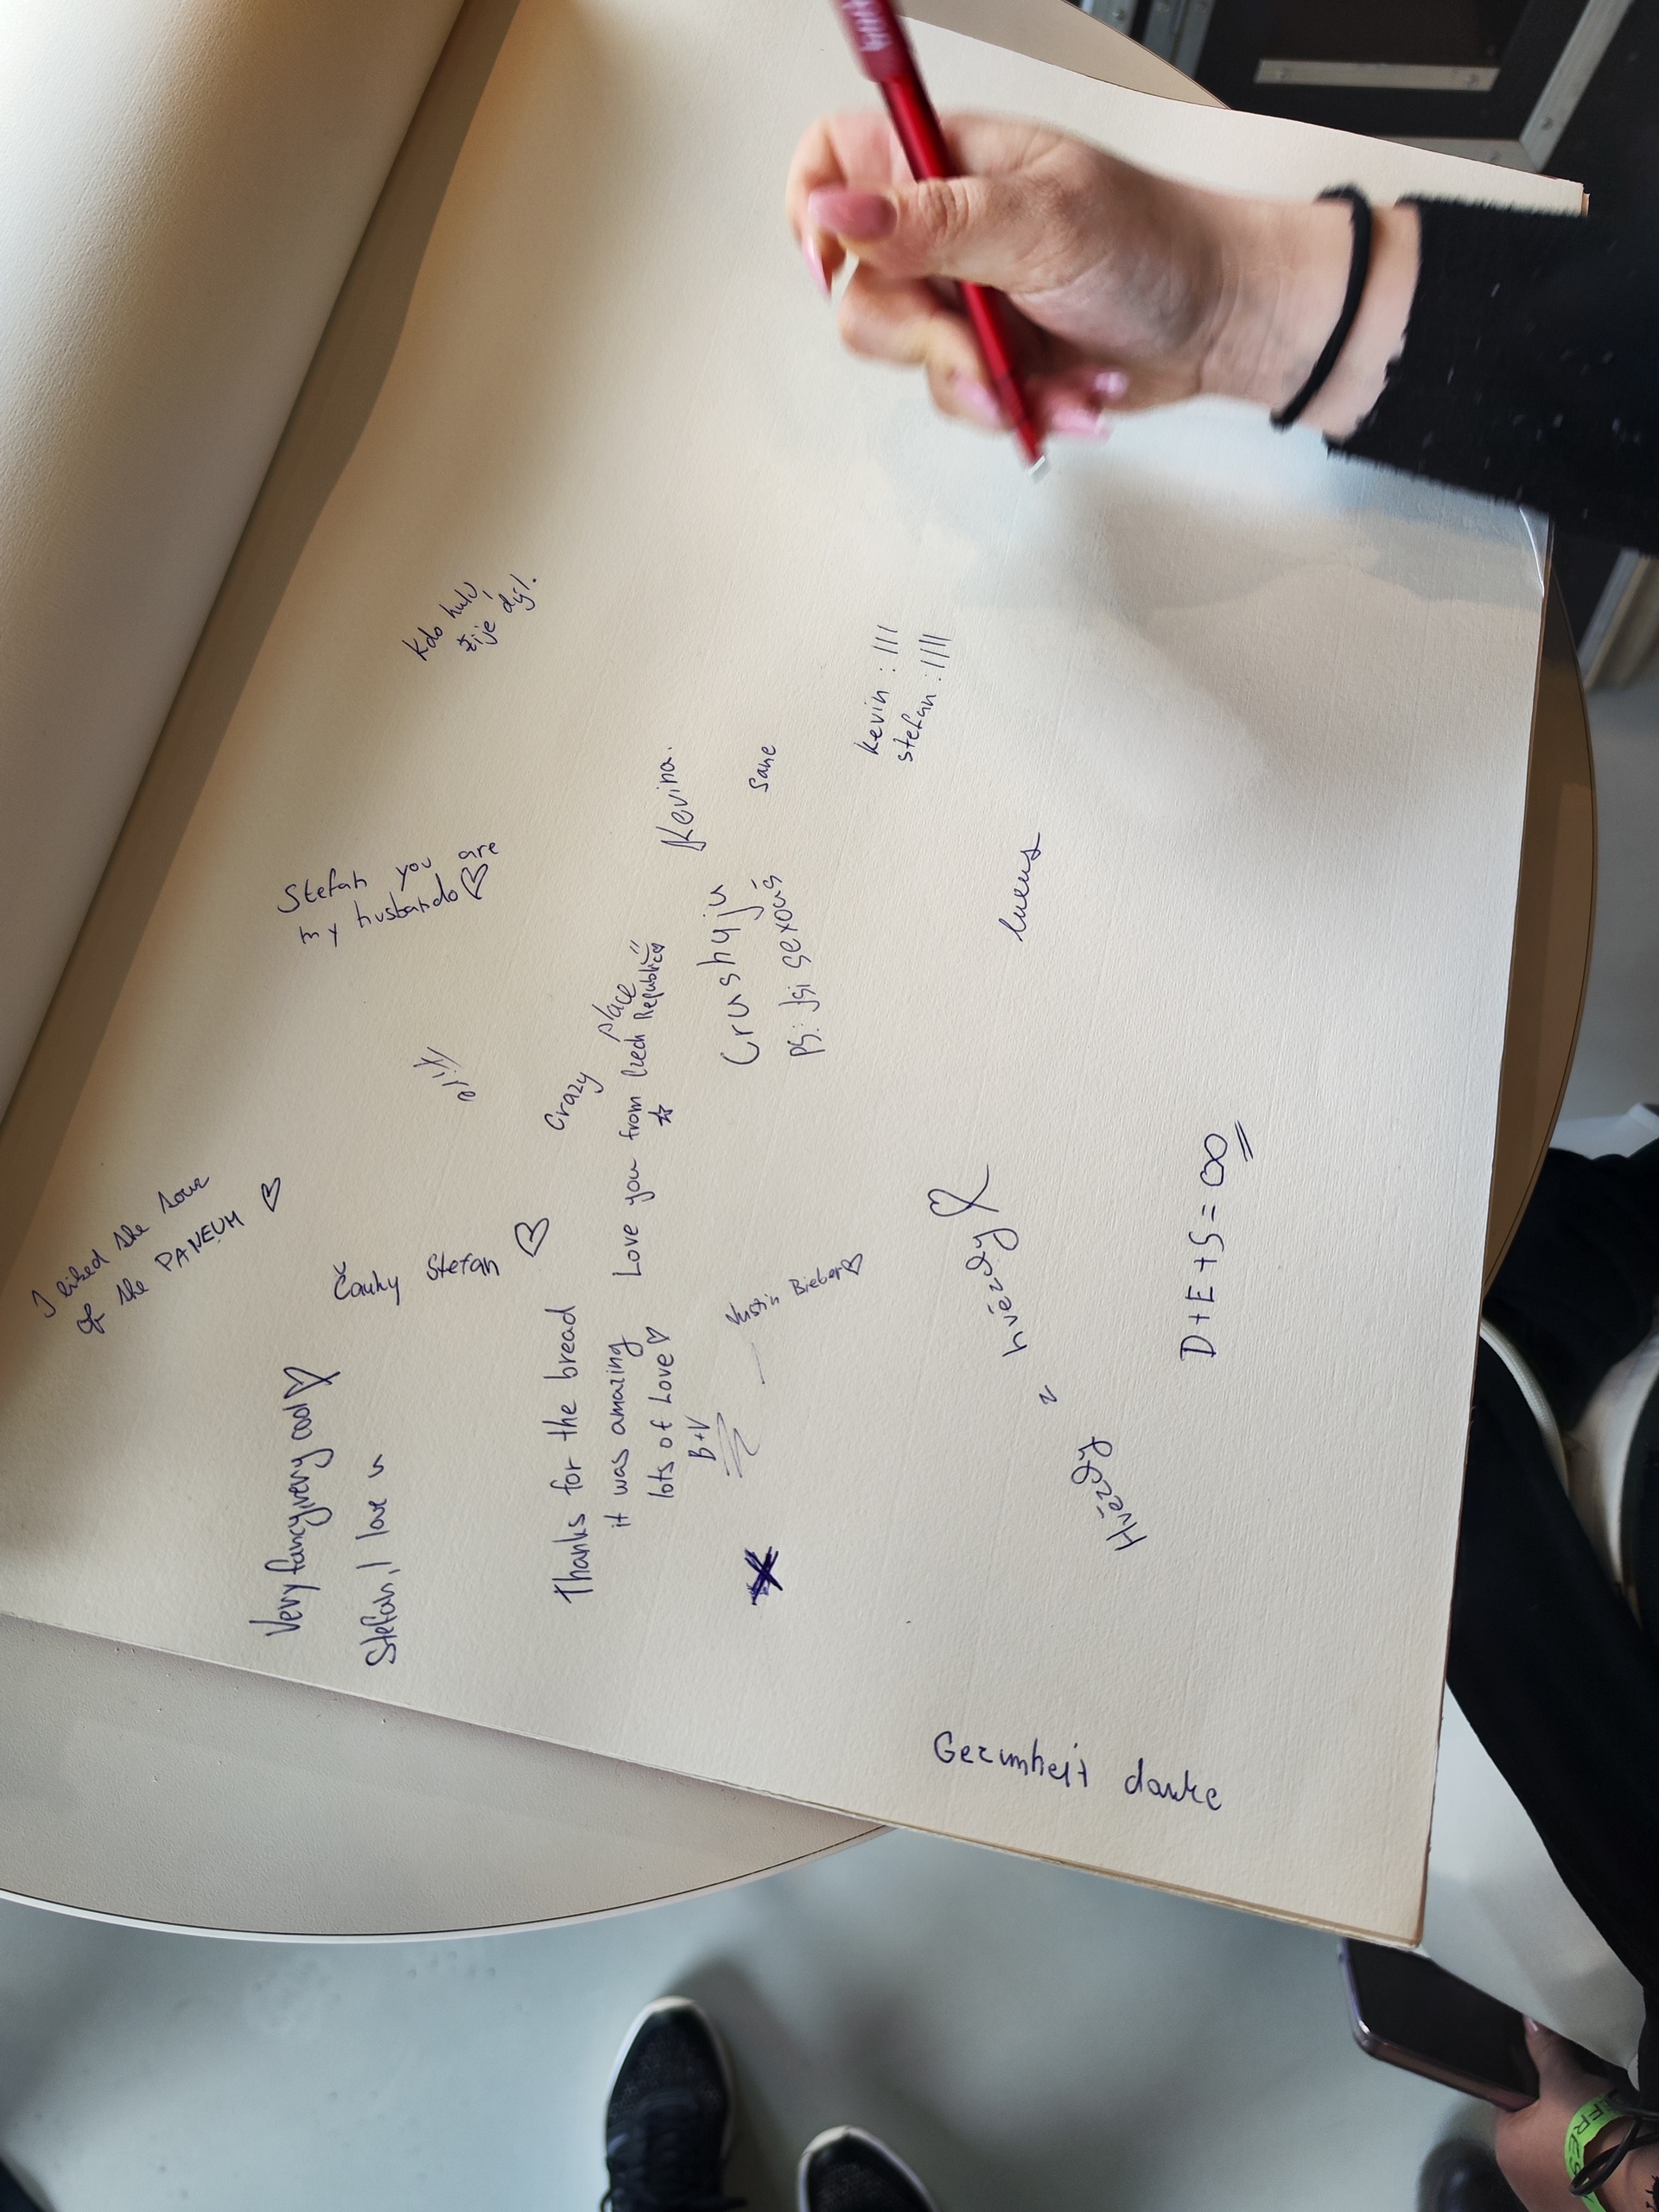 I liked the tour
of the PANEUM ♡
Very fancy, very cool ♡
Stefan, I love u
Čauky Stefan ♡
Stefan you are
my husbando ♡
Kdo hulí,
žije dýl.
Thanks for the bread
it was amazing
lots of Love ♡
B+V
Crazy place
Love you from Czech Republic
☆
Justin Bieber
Kevina.
Crushuju
same
PS: Jsi sexouš
kevin : |||
stefan : ||||
Hvězdy
hvězdy
D+E+S=∞
Gezunheit danke